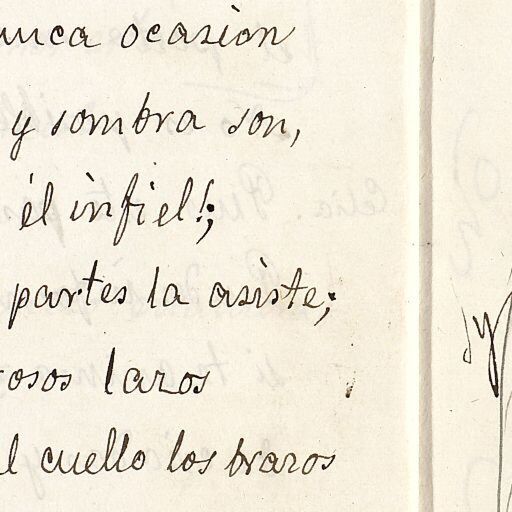 nunca ocasion
y sombra son,
él infiel!;
partes la asiste;
osos lazos
l cuello los brazos
y